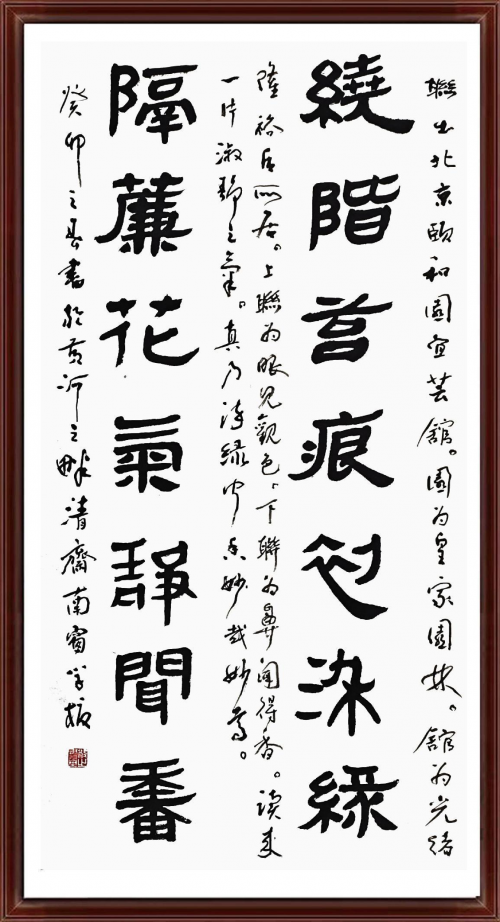 聯出北京頤和園宜芸館。園為皇家園林。館為光緒
繞階苔痕初染綠
隆裕后所居。上聯為眼見觀色、下聯為鼻聞得香。讀來
一片淑靜之氣。真乃綠聞香妙哉妙焉。
隔簾花氣靜聞香
癸卯之春書於黃河之畔清齋南窗學振